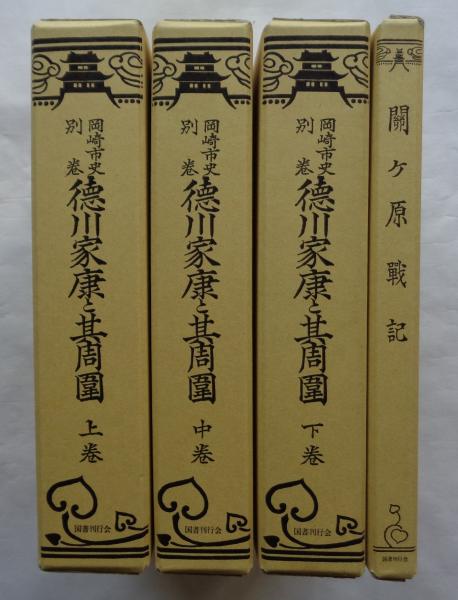 岡崎市史
別巻
徳川家康と其周圍
上巻
国書刊行会
岡崎市史
別巻
徳川家康と其周圍
中巻
国書刊行会
岡崎市史
別巻
徳川家康と其周圍
下巻
国書刊行会
關ヶ原戰記
国書刊行会